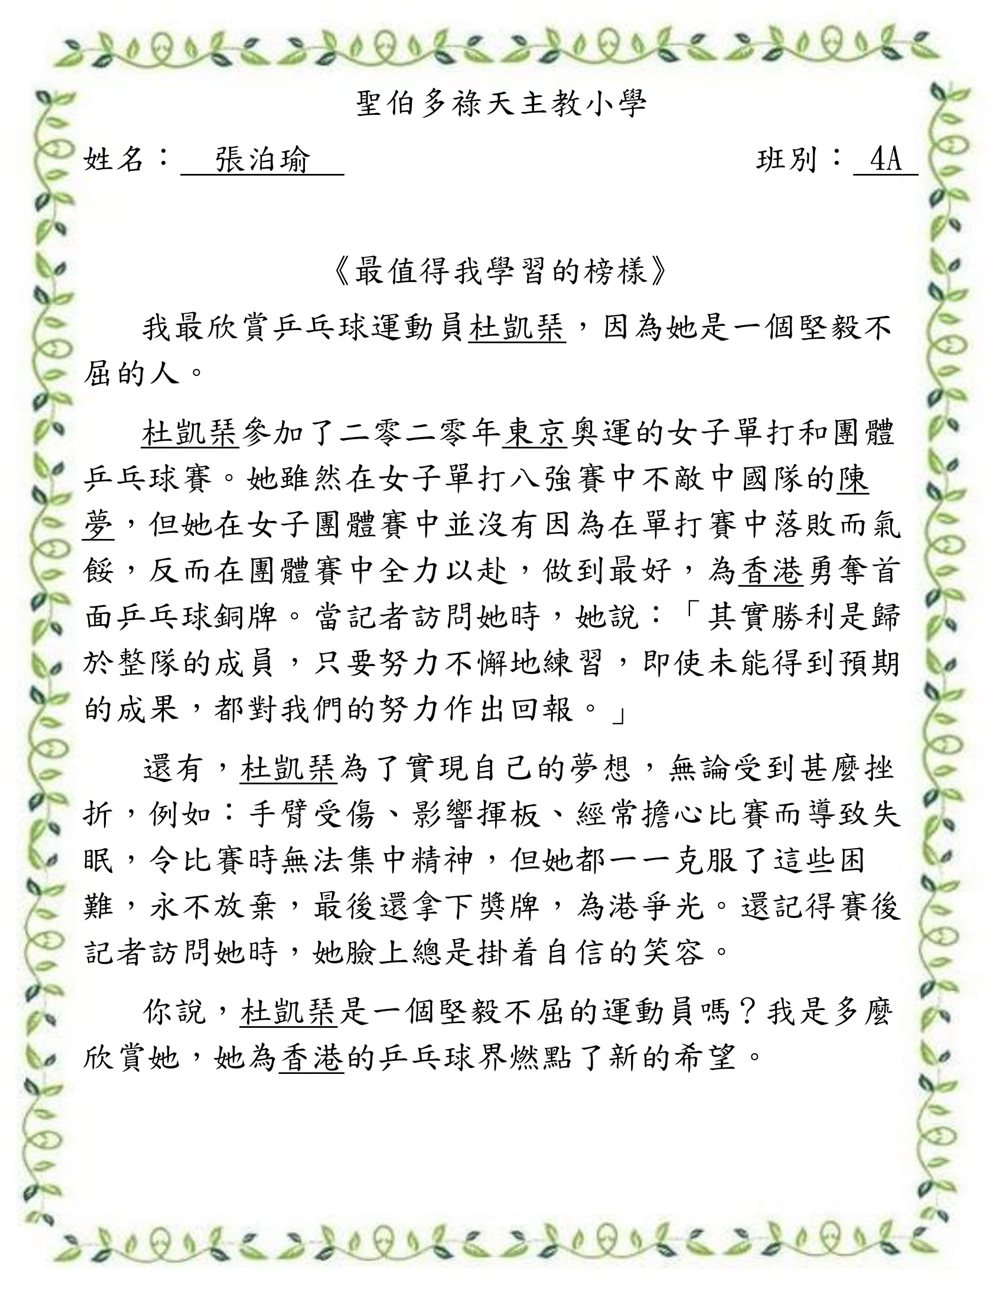 聖伯多祿天主教小學
姓名：　張泊瑜　　班別：　4A
《最值得我學習的榜樣》
我最欣賞乒乓球運動員杜凱琹，因為她是一個堅毅不
屈的人。
杜凱琹參加了二零二零年東京奧運的女子單打和團體
乒乓球賽。她雖然在女子單打八強賽中不敵中國隊的陳
夢，但她在女子團體賽中並沒有因為在單打賽中落敗而氣
餒，反而在團體賽中全力以赴，做到最好，為香港勇奪首
面乒乓球銅牌。當記者訪問她時，她說：「其實勝利是歸
於整隊的成員，只要努力不懈地練習，即使未能得到預期
的成果，都對我們的努力作出回報。」
還有，杜凱琹為了實現自己的夢想，無論受到甚麼挫
折，例如：手臂受傷、影響揮板、經常擔心比賽而導致失
眠，令比賽時無法集中精神，但她都一一克服了這些困
難，永不放棄，最後還拿下獎牌，為港爭光。還記得賽後
記者訪問她時，她臉上總是掛着自信的笑容。
你說，杜凱琹是一個堅毅不屈的運動員嗎？我是多麼
欣賞她，她為香港的乒乓球界燃點了新的希望。